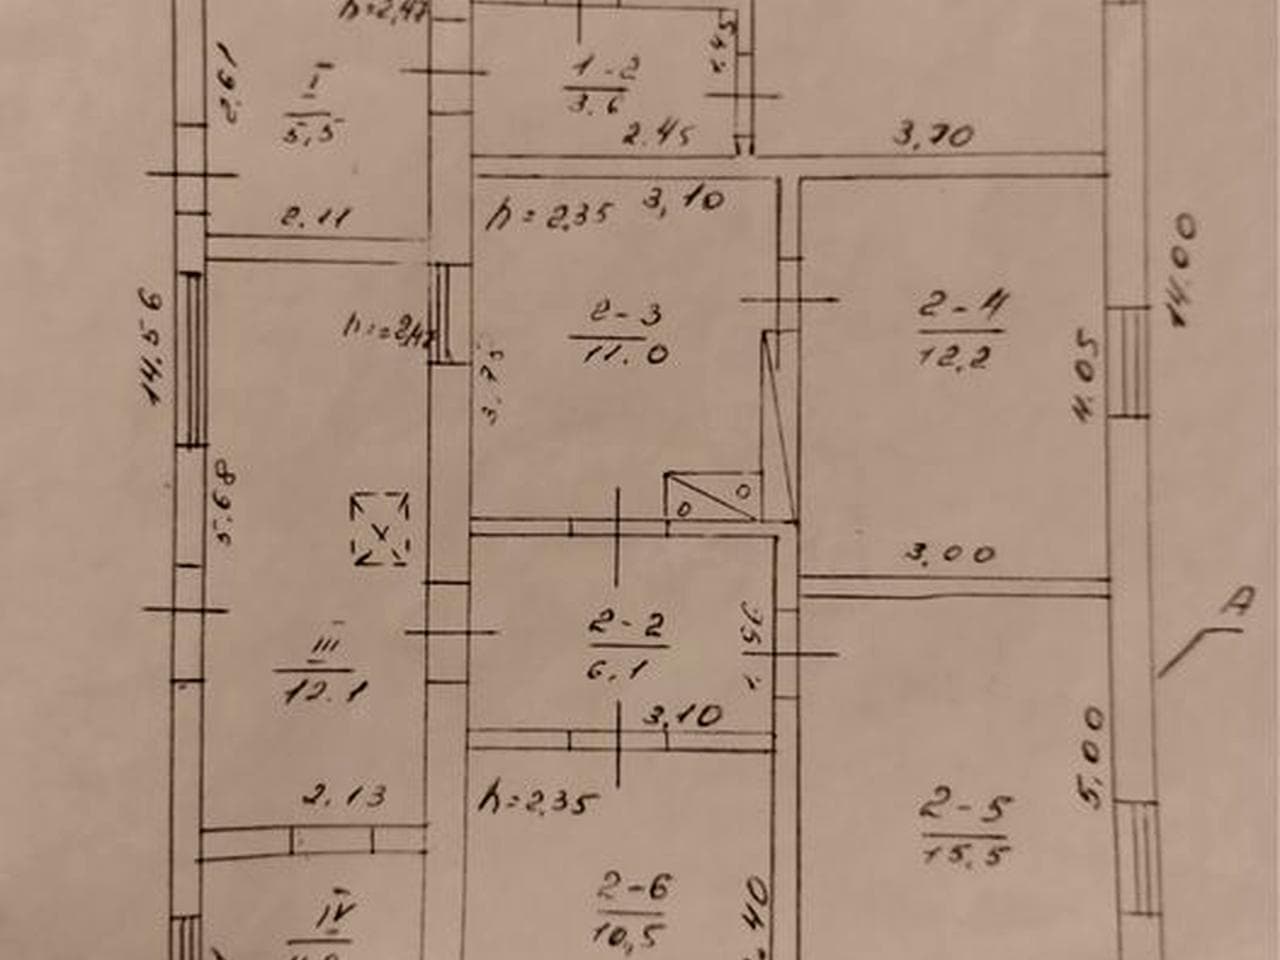 h=2,47
2,61
I
5,5
2.11
1-2
3.6
2.45
3,70
h=2,35
3,10
2-3
11.0
3,75
h=2,47
2-4
12,2
4.05
3,00
14.00
14.56
5.68
III
12.1
2.13
2-2
6,1
3,10
A
h=2,35
2-5
15,5
5,00
2-6
10,5
IV